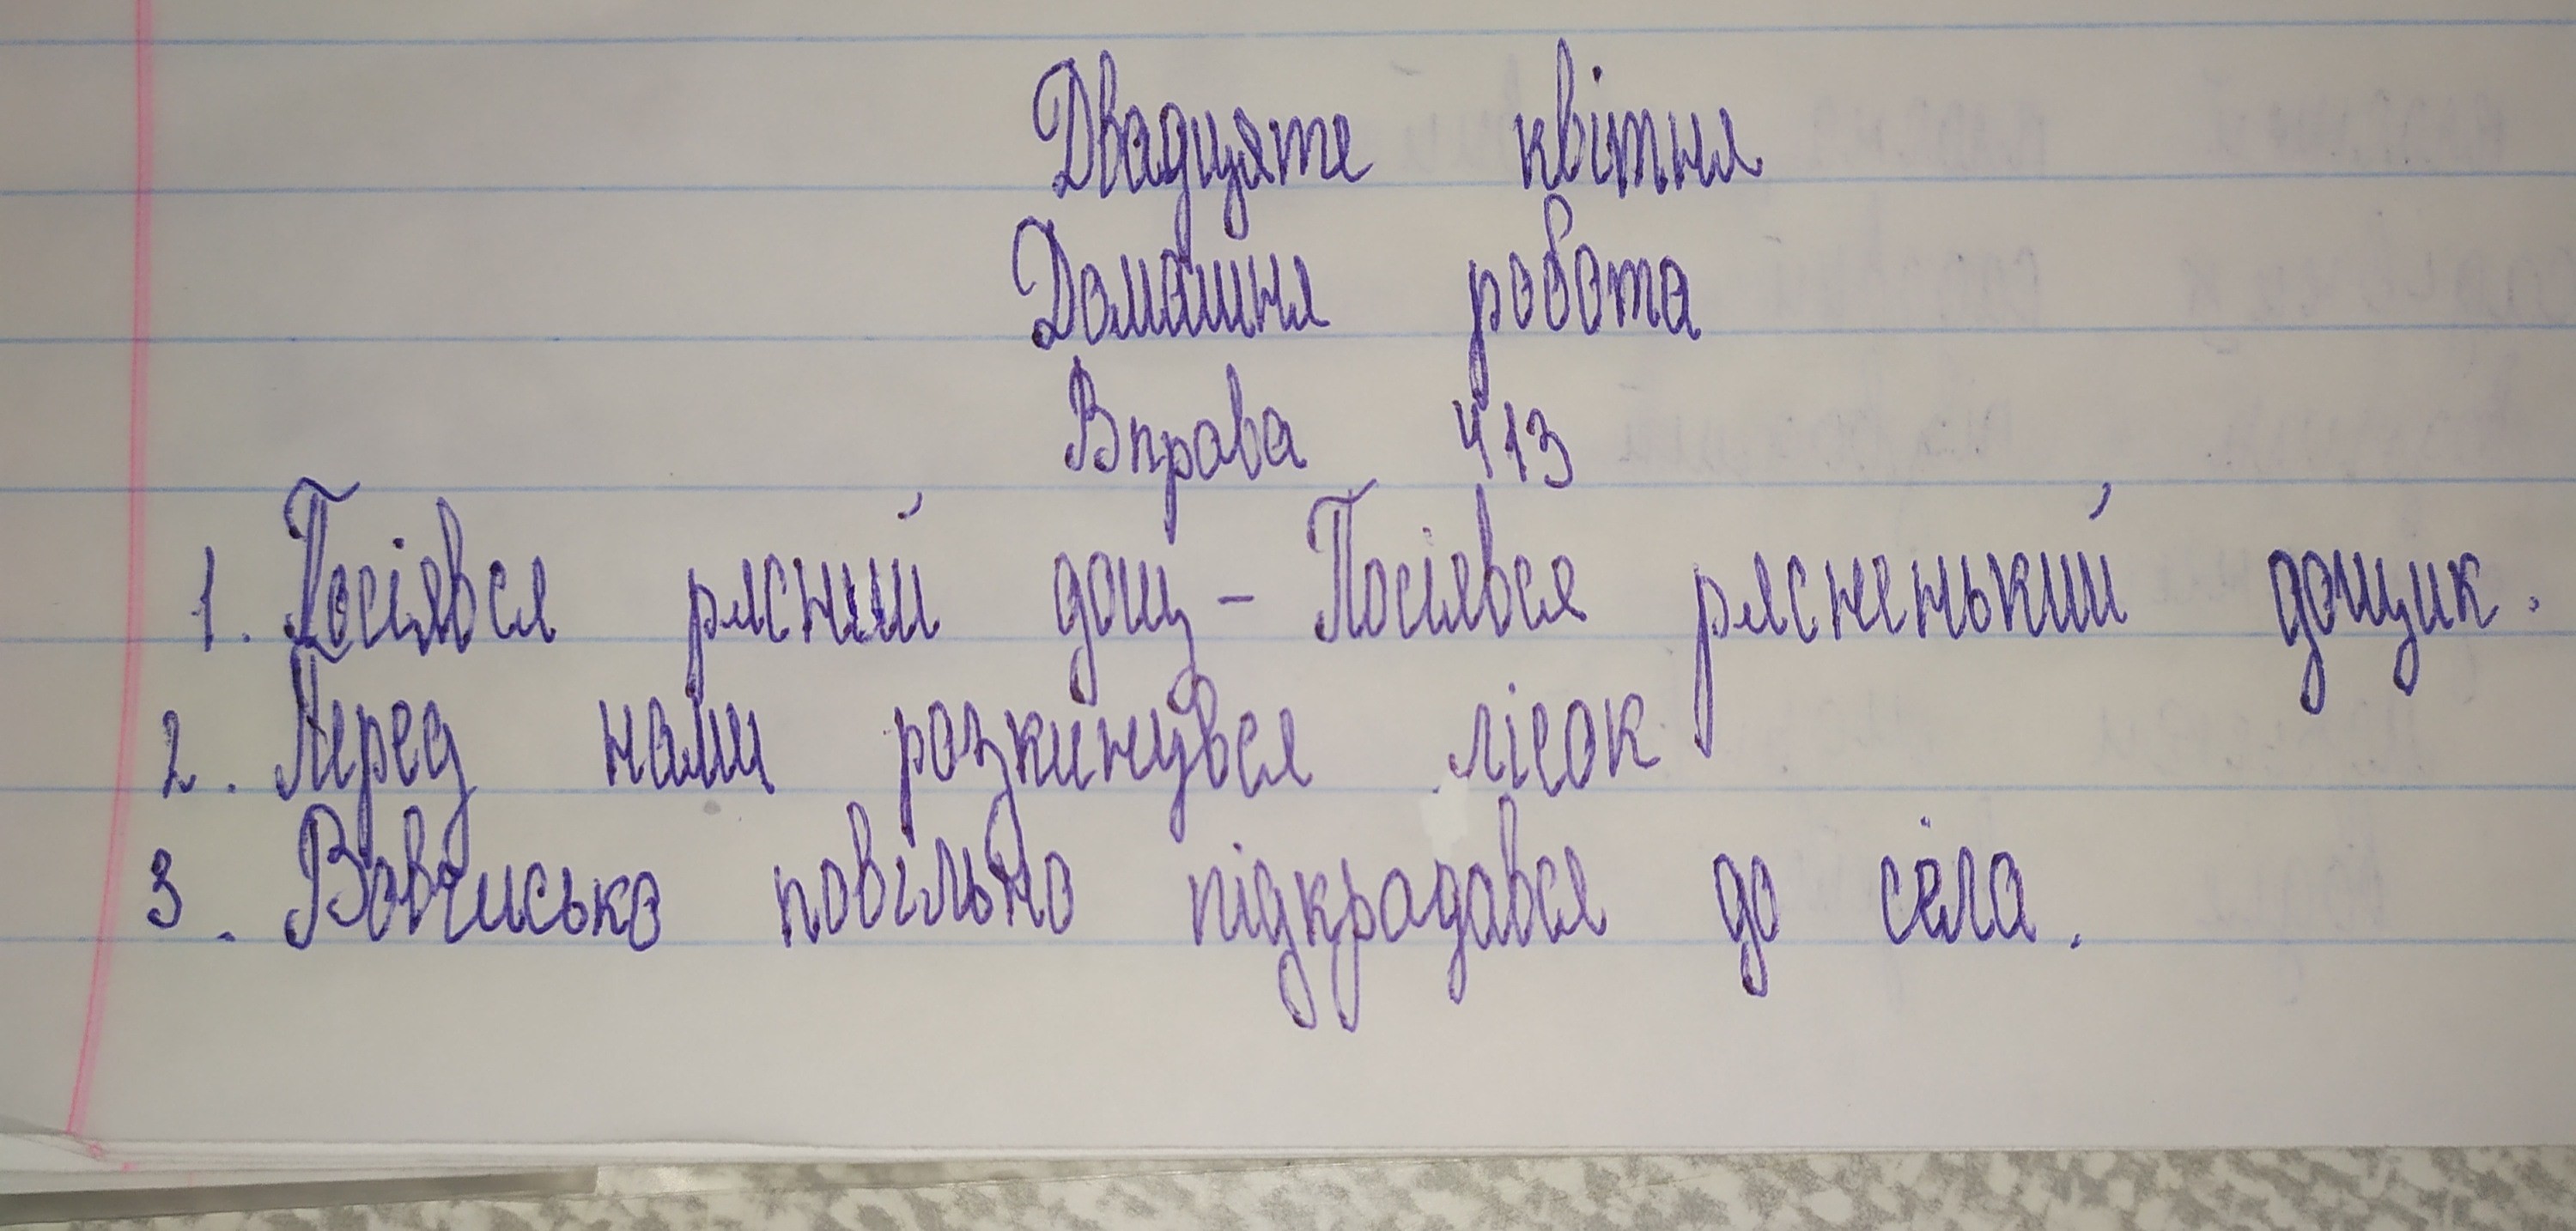 Двадцяте квітня
Домашня робота
Вправа 413
1. Посіявся рясний дощ – Посіявся рясненький дощик.
2. Перед нами розкинувся лісок
3. Вовчисько повільно підкрадався до села.